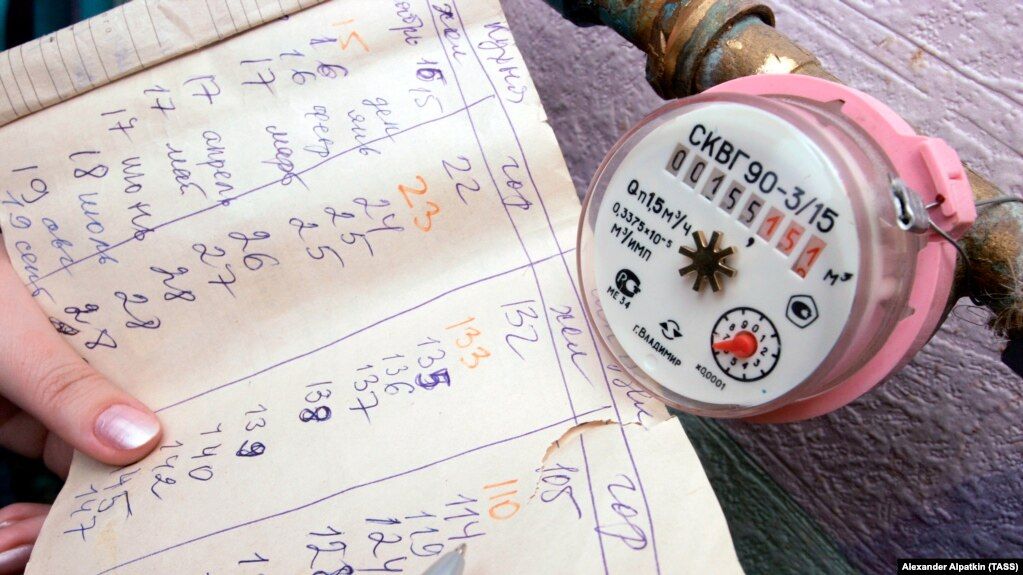 кухня
хол
гор
хол
гор
15
22
132
105
15
23
133
110
16
дек
24
135
114
16
янв
25
136
119
17
февр
25
137
124
17
март
26
138
128
17
апрель
27
139
17
май
28
140
18
июнь
28
142
18
июль
28
145
19
авг
147
19
сент
СКВГ90-3/15
00155,151
м³
Qп1,5м³/ч
0,3375×10⁻⁵
м³/имп
МЕ 34
г.Владимир
х0,0001
0 1 2 3 4 5 6 7 8 9
Alexander Alpatkin (TASS)